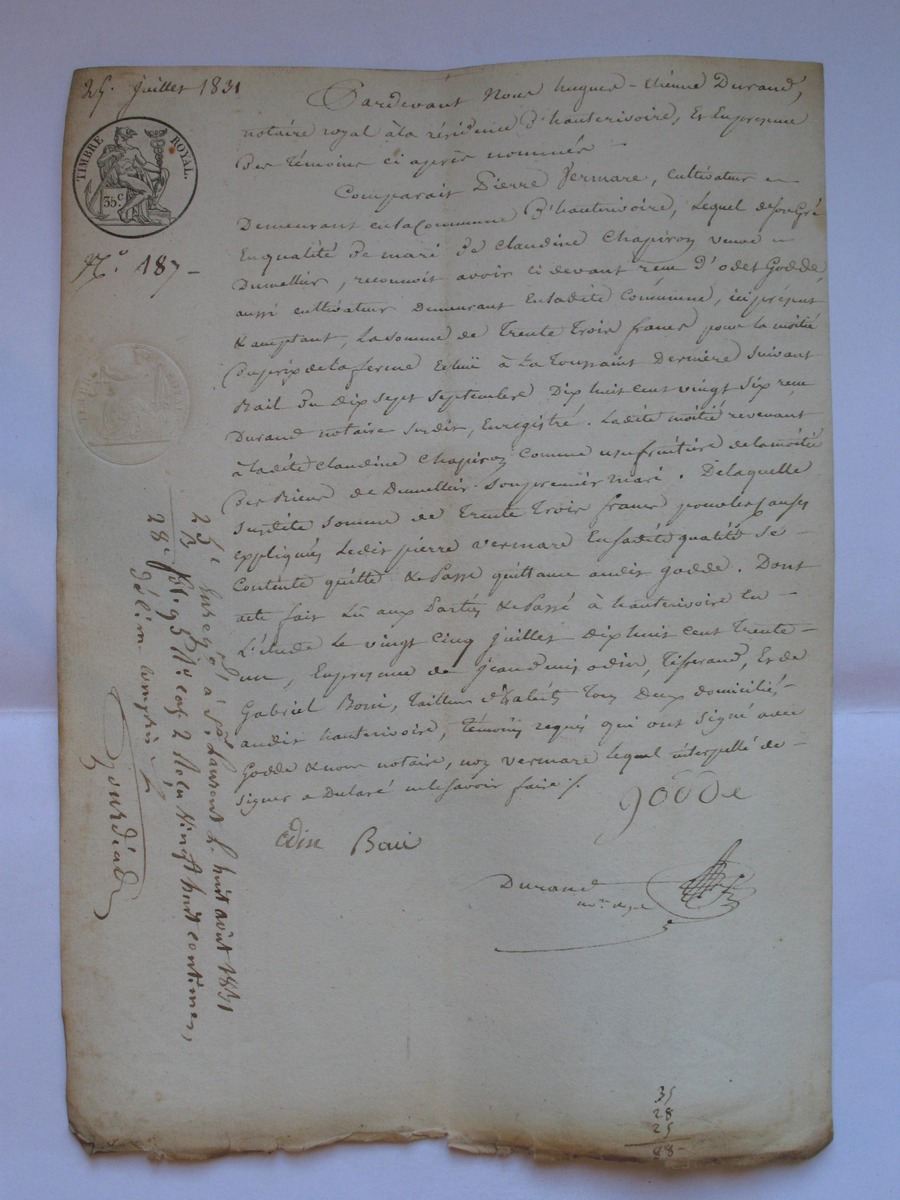 25. juillet 1831
TIMBRE ROYAL.
35c
No. 187 -
Pardevant Nous hugues-étienne Durand,
notaire royal à la résidence D'hauterivoire, et En presence
des témoins ci après nommés -
Comparait Pierre Vermare, cultivateur
Demeurant en la Commune D'hauterivoire, Lequel de son Gré
En qualité De mari De Claudine Chapiron veuve
Dumellier, reconnoit avoir ci devant reçu D'odet Godde
aussi cultivateur Demeurant En ladite Commune, ici présent
& acceptant, La somme de Trente Trois francs pour la moitié
Du prix de la ferme Echuë à La Toussaint Dernière Suivant
Bail du Dix sept Septembre Dix huit cent vingt six reçu
Durand notaire susdit, Enregistré. Ladite moitié revenant
à Ladite Claudine Chapiron Comme usufruitière de la moitié
Des Biens de Dumellier Son premier mari. De laquelle
Susdite Somme de Trente Trois francs pour les causes
expliquées Ledit pierre vermare En sadite qualité se
Contente quitte & Passe quittance audit godde. Dont
acte fait Lu aux Parties & Passé à hauterivoire En
L'étude Le vingt Cinq juillet Dix huit cent Trente -
un, En presence de jean denis odin, Tisserand, Et de
Gabriel Boni, Tailleur d'habits Tous Deux domiciliés
audit hauterivoire, témoins requis qui ont signé avec
Godde & nous notaire, non vermare Lequel interpellé de -
signer a Declaré ne le savoir faire /.
godde
odin Boni
Durand
nore
25c
28c
Enregté à St Laurent Le huit août 1831
fol. 93 Ro Reçu vingt huit centimes,
décime compris
Gourdiad
35
28
25
88 -